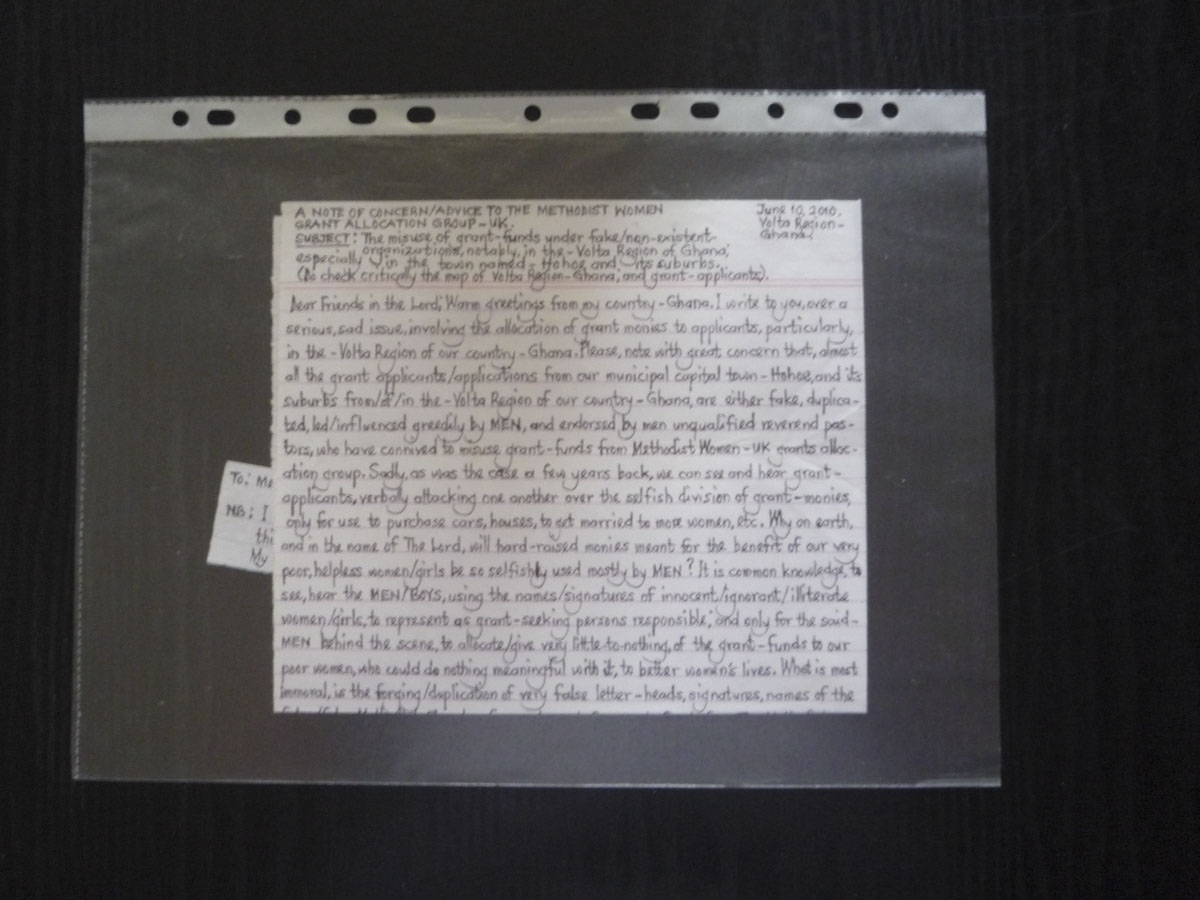 A NOTE OF CONCERN/ADVICE TO THE METHODIST WOMEN
GRANT ALLOCATION GROUP-UK.
June 10, 2010.
Volta Region-
Ghana.
SUBJECT: The misuse of grant-funds under fake/non-existent
organizations, notably, in the-Volta Region of Ghana,
especially in the town named-Hohoe and its suburbs.
(Do check critically the map of Volta Region-Ghana, and grant-applicants).
Dear Friends in the Lord; Warm greetings from my country-Ghana. I write to you, over a
serious, sad issue, involving the allocation of grant monies to applicants, particularly,
in the-Volta Region of our country-Ghana. Please, note with great concern that, almost
all the grant applicants/applications from our municipal capital town-Hohoe, and its
suburbs from/of/in the-Volta Region of our country-Ghana, are either fake, duplica-
ted, led/influenced greedily by MEN, and endorsed by men unqualified reverend pas-
tors, who have connived to misuse grant-funds from Methodist Women-UK grants alloc-
ation group. Sadly, as was the case a few years back, we can see and hear grant-
applicants, verbaly attacking one another over the selfish division of grant-monies,
only for use to purchase cars, houses, to get married to more women, etc. Why on earth,
and in the name of The Lord, will hard-raised monies meant for the benefit of our very
poor, helpless women/girls be so selfishly used mostly by MEN? It is common knowledge, to
see, hear the MEN/BOYS, using the names/signatures of innocent/ignorant/illiterate
women/girls, to represent as grant-seeking persons responsible, and only for the said-
MEN behind the scene, to allocate/give very little-to-nothing, of the grant-funds to our
poor women, who could do nothing meaningful with it, to better women's lives. What is most
immoral, is the forging/duplication of very false letter-heads, signatures, names of the
To: Me
NB: I
thi
My